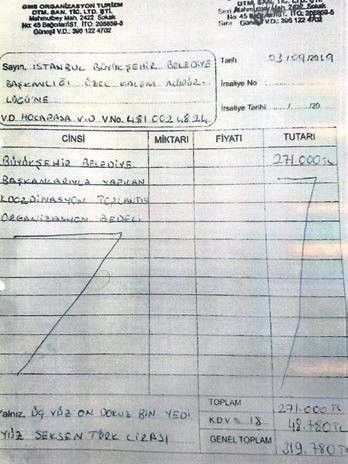 GMS ORGANİZASYON TURİZM
OTM. SAN. TİC. LTD. ŞTİ.
Mahmutbey Mah. 2422. Sokak
No: 45 Bağcılar/İST. İTO: 205859-5
Güneşli V.D: 396 122 4702
OTM. SAN. TİC. LTD. ŞTİ.
Seri Mahmutbey Mah. 2422. Sokak
No: 45 Bağcılar/İST. İTO: 205859-5
Sıra Güneşli V.D: 396 122 4702
Sayın, İSTANBUL BÜYÜKŞEHİR BELEDİYE
BAŞKANLIĞI ÖZEL KALEM MÜDÜR-
LÜĞÜ'NE
V.D. HOCAPAŞA V.D V.No. 481 002 4824
Tarih 23/09/2019
İrsaliye No
İrsaliye Tarihi / /20
CİNSİ MİKTARI FİYATI TUTARI
BÜYÜKŞEHİR BELEDİYE 271.000TL
BAŞKANLARIYLA YAPILAN
KOORDİNASYON TOPLANTI
ORGANİZASYON BEDELİ
Yalnız, ÜÇ YÜZ ON DOKUZ BİN YEDİ
YÜZ SEKSEN TÜRK LİRASI
TOPLAM 271.000TL
K.D.V % 18 48.780TL
GENEL TOPLAM 319.780TL